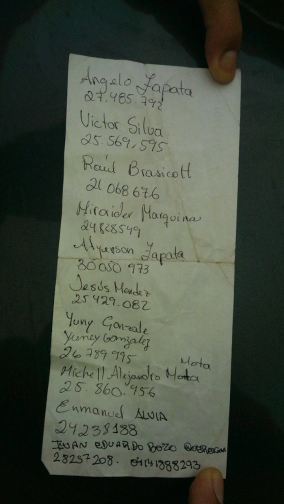 Angelo Zapata
27.485.792
Victor Silva
25.569.595
Raúl Brasicott
21 068 676
Miraider Marquina
24828549
Alyerson Zapata
30050 973
Jesús Mendez
25 429.082
Yuny Gonzale
Yumey Gonzalez
26 789 995
Mota
Michell Alejandro Mota
25.860.956
Enmanuel ALVIA
24238188
IVAN EDUARDO BOZO
28257208. 04141888293